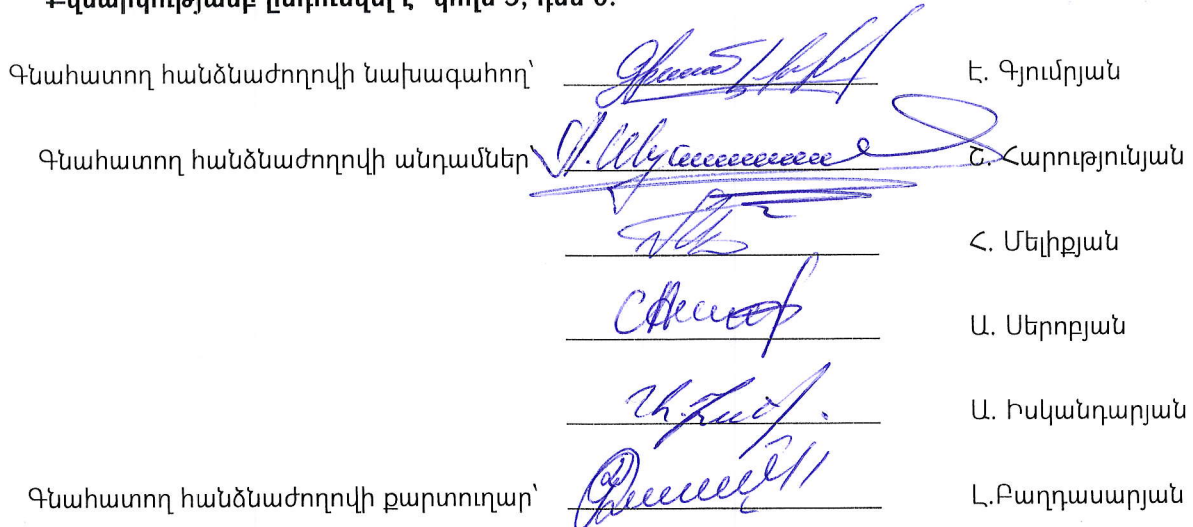 Քվեարկությամբ ընդունվել է՝ կողմ 5, դեմ 0:
Գնահատող հանձնաժողովի նախագահող՝ Է. Գյումրյան
Գնահատող հանձնաժողովի անդամներ՝ Շ. Հարությունյան
Հ. Մելիքյան
Ա. Սերոբյան
Ա. Իսկանդարյան
Գնահատող հանձնաժողովի քարտուղար՝ Լ.Բաղդասարյան